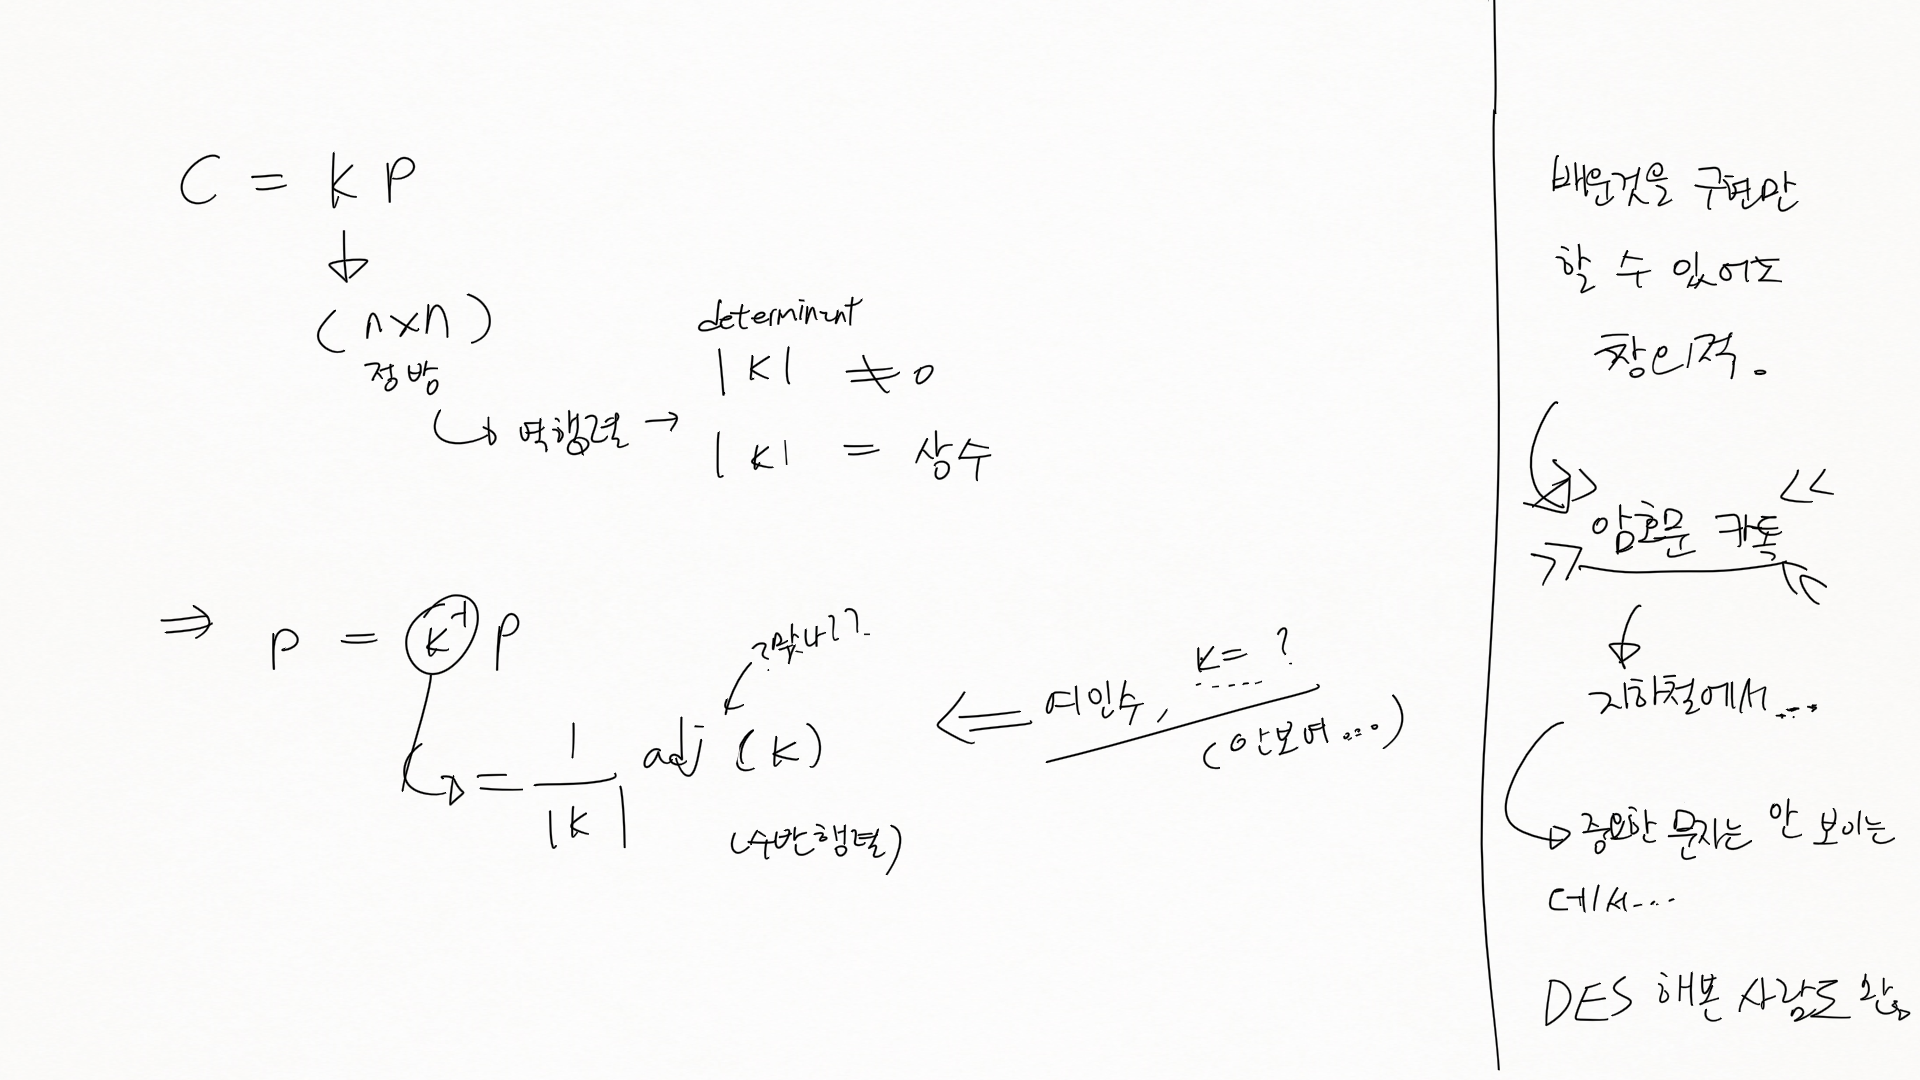 C = K P
(n×n)
정방
역행렬 →
determinant
|K| ≠ 0
|K| = 상수
⇒ P = K⁻¹ P
= 1/|K| adj (K)
? 맞나??
(수반행렬)
⇐ 여인수, K= ?
(안보여...)
배운것을 구현만
할 수 있어도
창의적.
>> <<
>> 암호문 카톡 <<
지하철에서...
중요한 문자는 안 보이는
데서...
DES 해본 사람도